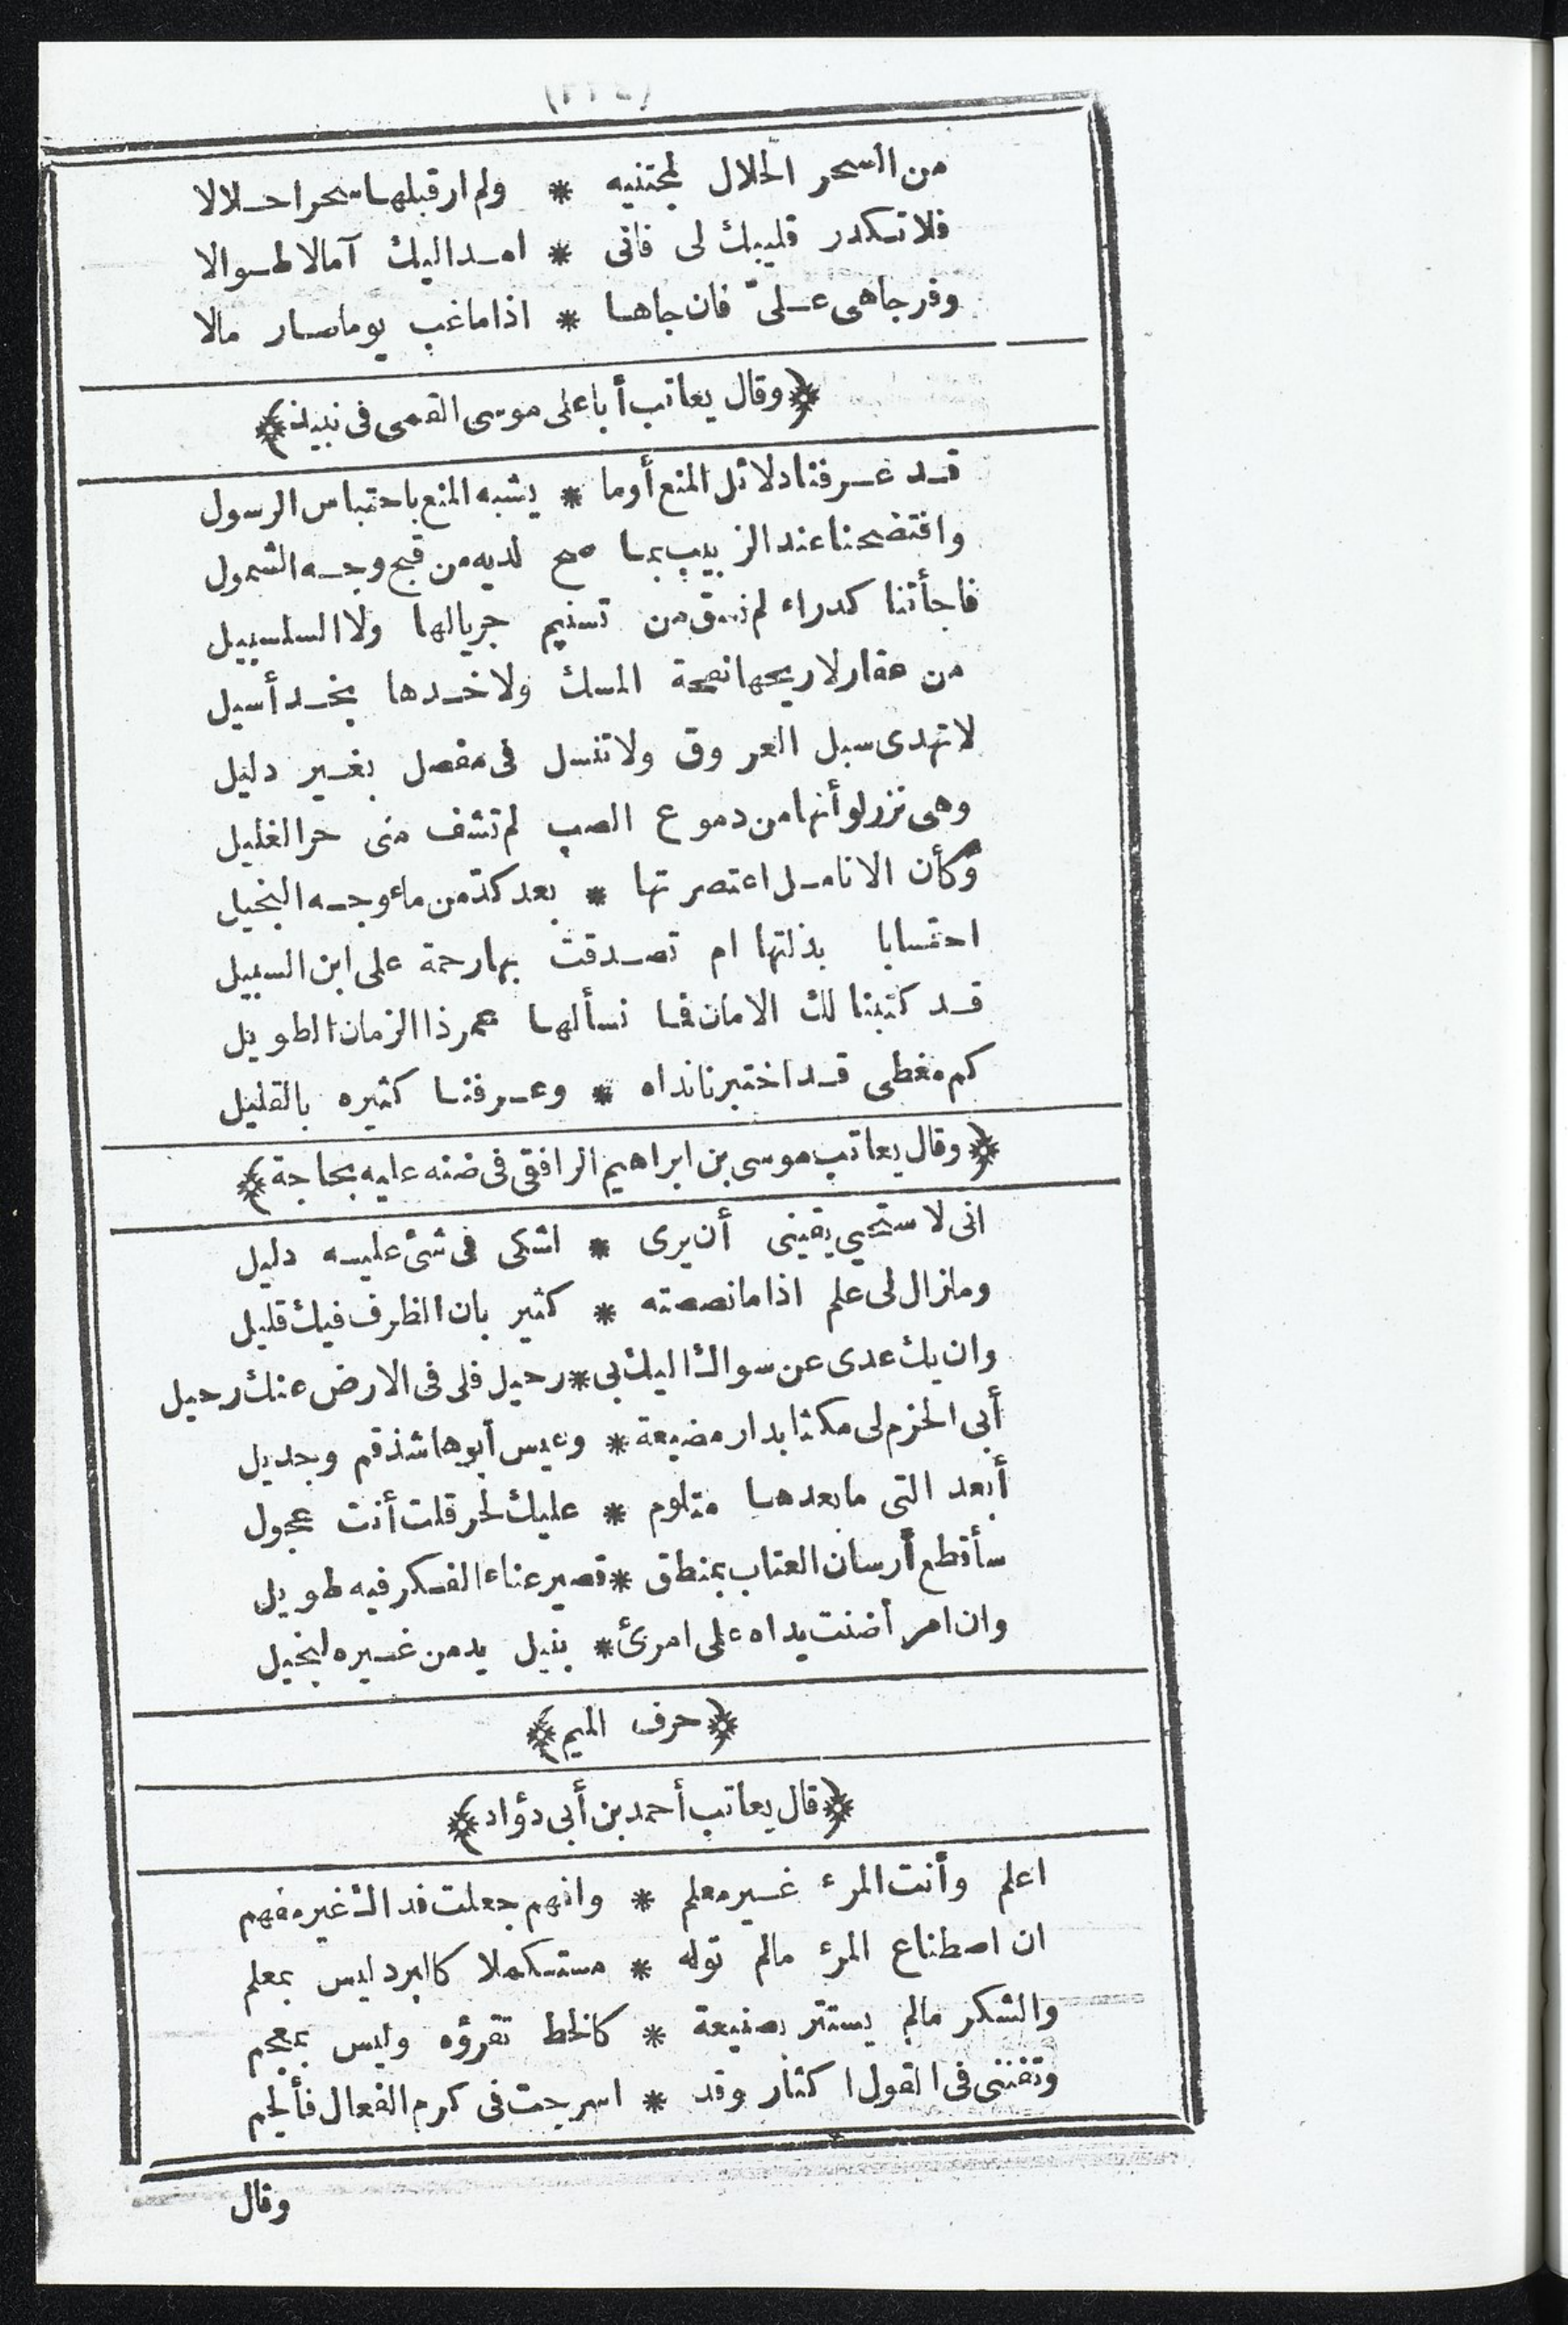 من السحر الحلال لمجتنيه * ولم ار قبلها سحرا حلالا
فلا تكدر قليبك لى فانى * امد اليك آمالا طوالا
وفر جاهى علىّ فان جاها * اذا ما غب يوما صار مالا
وقال يعاتب أبا على موسى القمى فى نبيذ
قد عرفنا دلائل المنع أو ما * يشبه المنع باحتباس الرسول
وافتضحنا عند الزبيب بما صح لديه من قبح وجه الشمول
فاجأتنا كدراء لم تسق من تسنيم جريالها ولا السلسبيل
من عقار لا ريحها نفحة المسك ولا خدها بخد أسيل
لا تهدى سبل العروق ولا تنسل فى مفصل بغير دليل
وهى نزر لو أنها من دموع الصب لم تشف منى حر الغليل
وكأن الانامل اعتصرتها * بعد كدّ من ماء وجه البخيل
احتسابا بذلتها ام تصدقت بها رحمة على ابن السبيل
قد كتبنا لك الامان فما نسألها عمر ذا الزمان الطويل
كم مغطى قد اختبرنا نداه * وعرفنا كثيره بالقليل
وقال يعاتب موسى بن ابراهيم الرافقى فى ضنه عليه بحاجة
انى لاستحيي يقينى أن يرى * اشكى فى شئ عليه دليل
وما زال لى علم اذا ما نصصته * كثير بان الظرف فيك قليل
وان يك عدى عن سواك اليك بى * رحيل فلى فى الارض عنك رحيل
أبى الحزم لى مكثا بدار مضيعة * وعيس أبوها شذقم وجديل
أبعد التى ما بعدها متلوم * عليك لحر قلت أنت عجول
سأقطع أرسان العتاب بمنطق * قصير عناء الفكر فيه طويل
وان امرأ ضنت يداه على امرئ * بنيل يد من غيره لبخيل
حرف الميم
قال يعاتب أحمد بن أبى دؤاد
اعلم وأنت المرء غير معلم * وافهم جعلت فداك غير مفهم
ان اصطناع المرء مالم توله * مستكملا كالبرد ليس بمعلم
والشكر مالم يستتر بصنيعة * كالخط تقرؤه وليس بمعجم
وتفننى فى القول اكثار وقد * اسرجت فى كرم الفعال فألجم
وقال